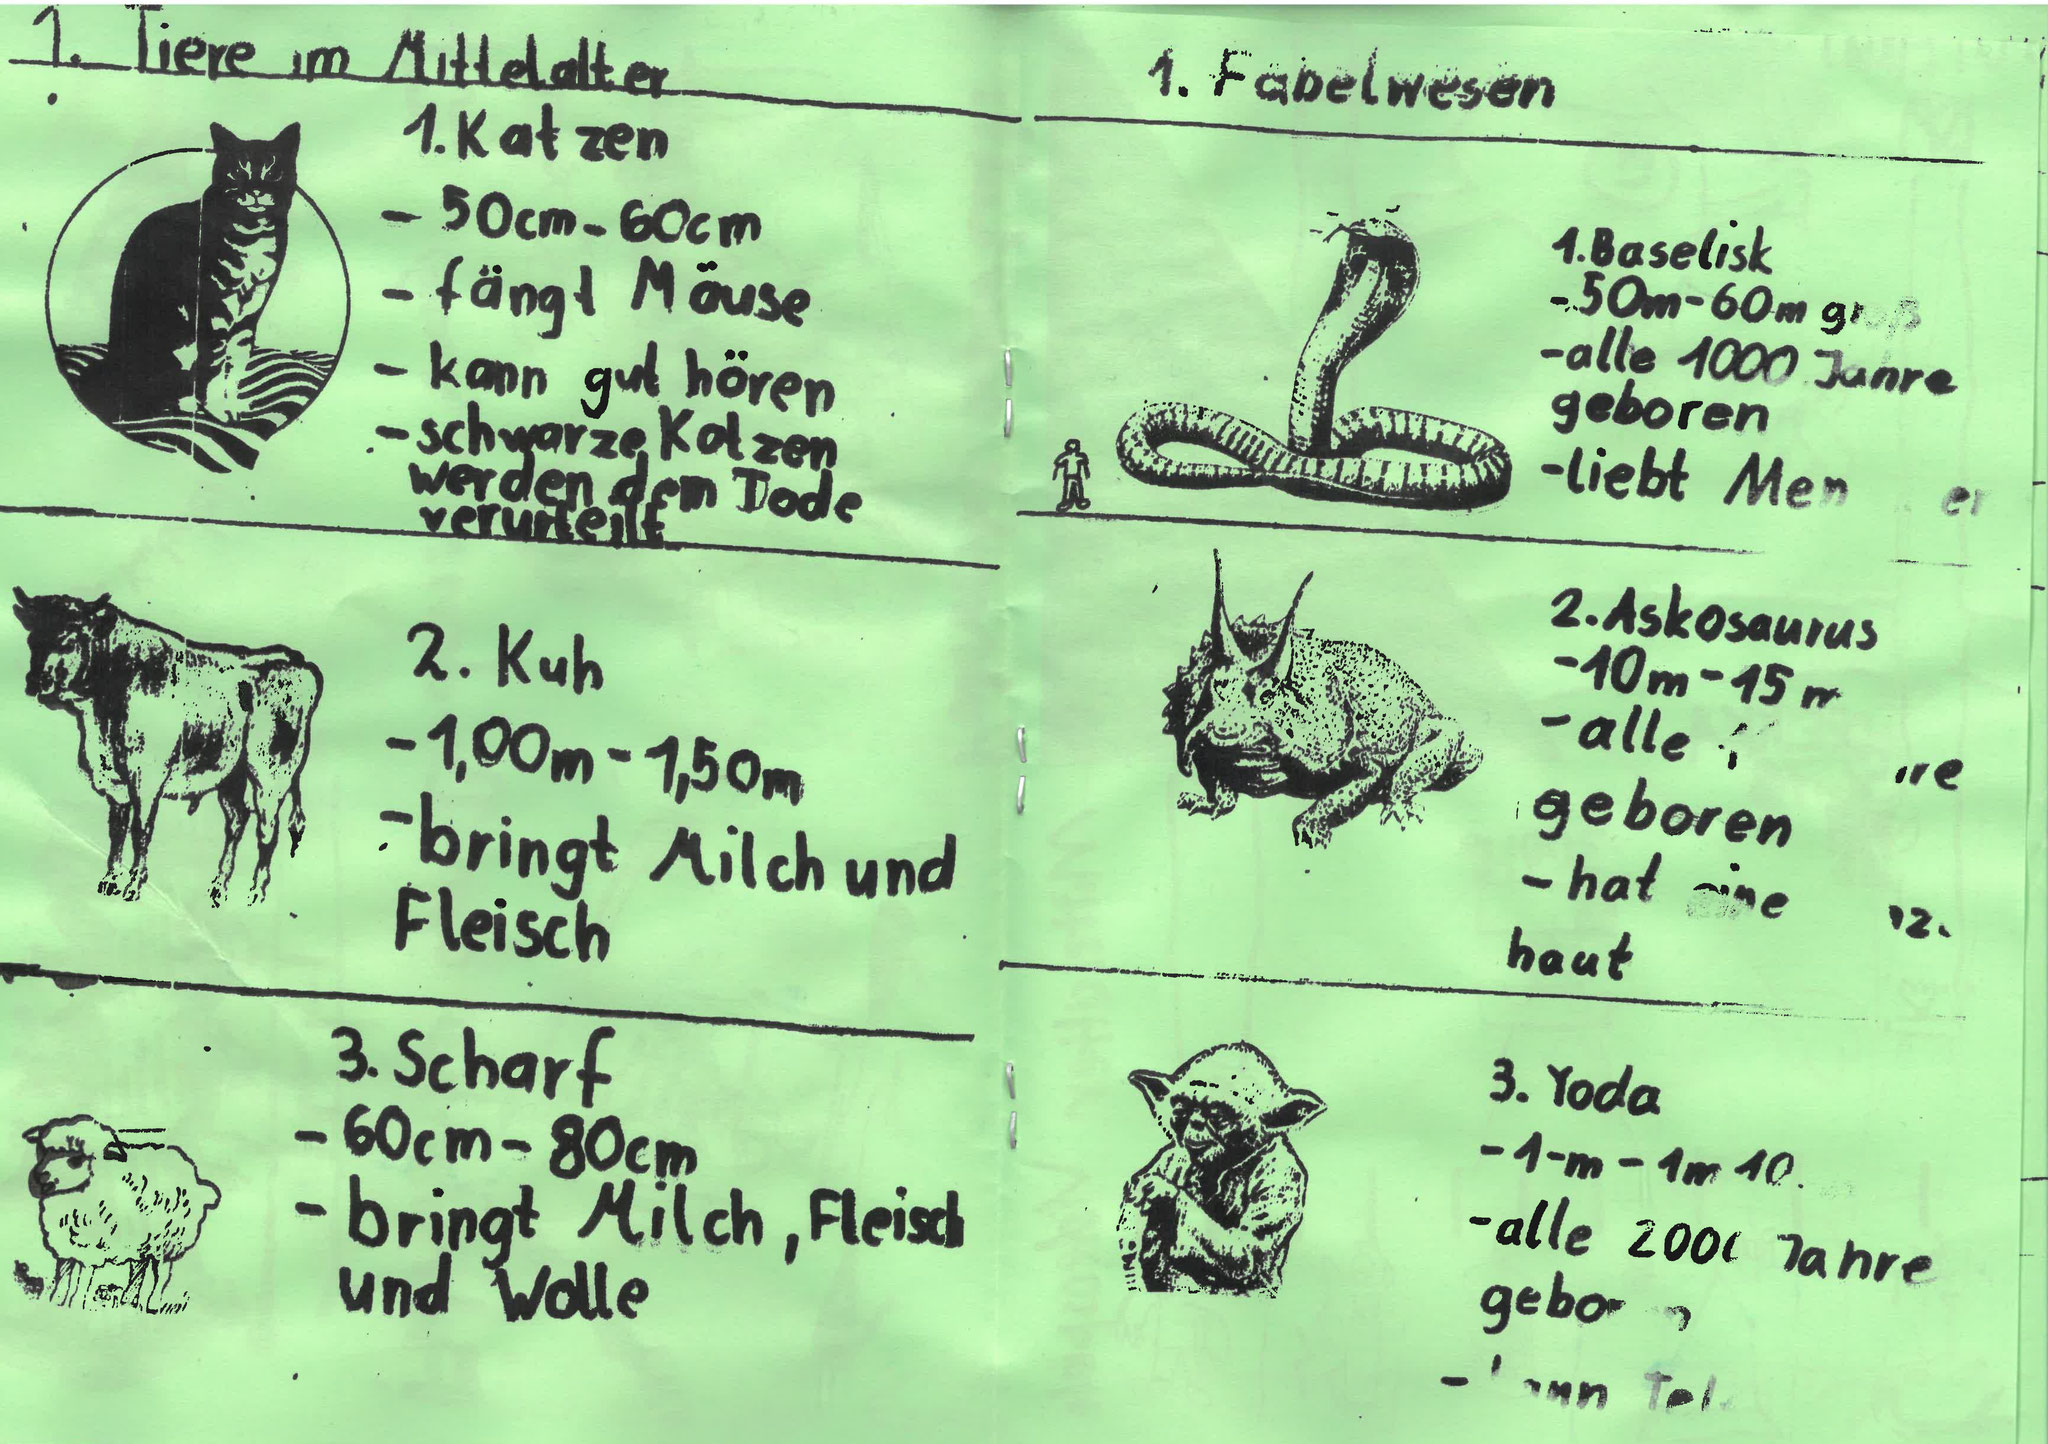 1. Tiere im Mittelalter
1. Katzen
- 50cm - 60cm
- fängt Mäuse
- kann gut hören
- schwarze Katzen
werden dem Tode
verurteilt
2. Kuh
- 1,00m - 1,50m
- bringt Milch und
Fleisch
3. Scharf
- 60cm - 80cm
- bringt Milch, Fleisch
und Wolle
1. Fabelwesen
1. Baselisk
- 50m - 60m groß
- alle 1000 Jahre
geboren
- liebt
2. Askosaurus
- 10m - 15m
- alle
geboren
- hat eine
haut
3. Yoda
- 1-m - 1m 10
- alle 2000 Jahre
geboren
- kann